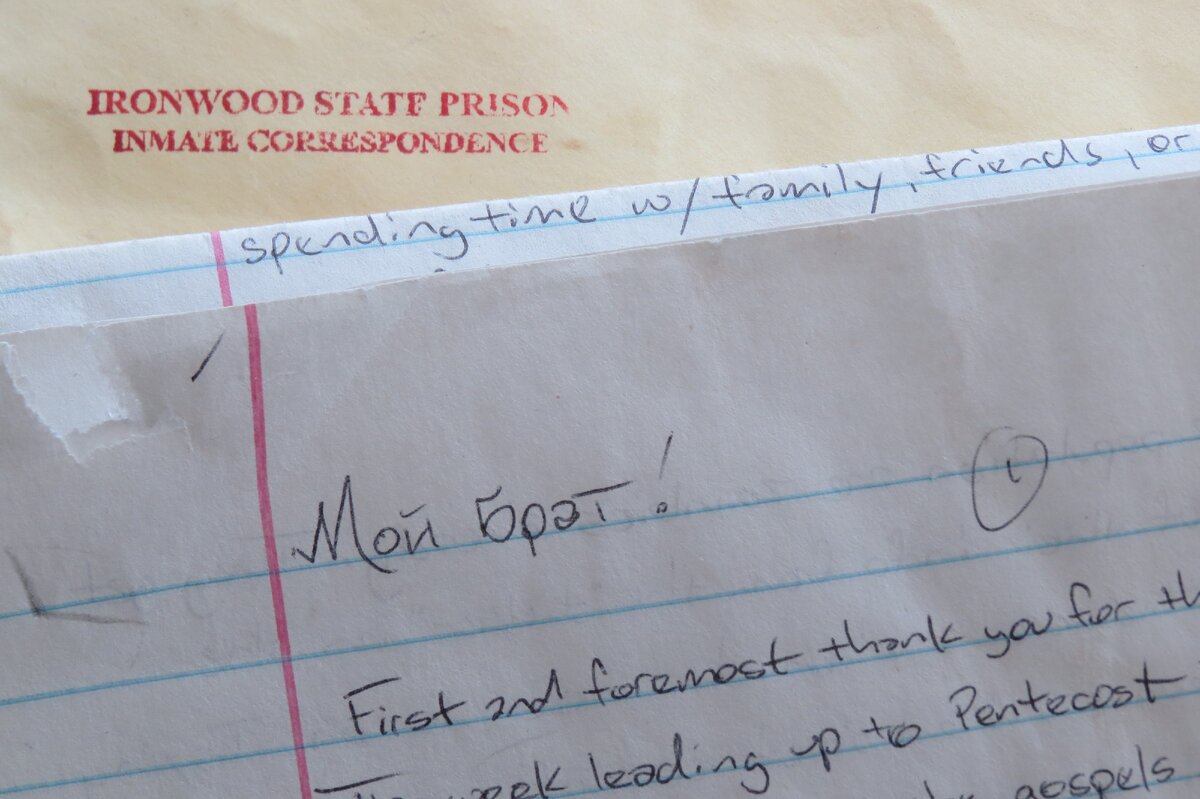 IRONWOOD STATE PRISON
INMATE CORRESPONDENCE
spending time w/ family, friends, or
Мой брат!
1
First and foremost thank you for
week leading up to Pentecost
gospels